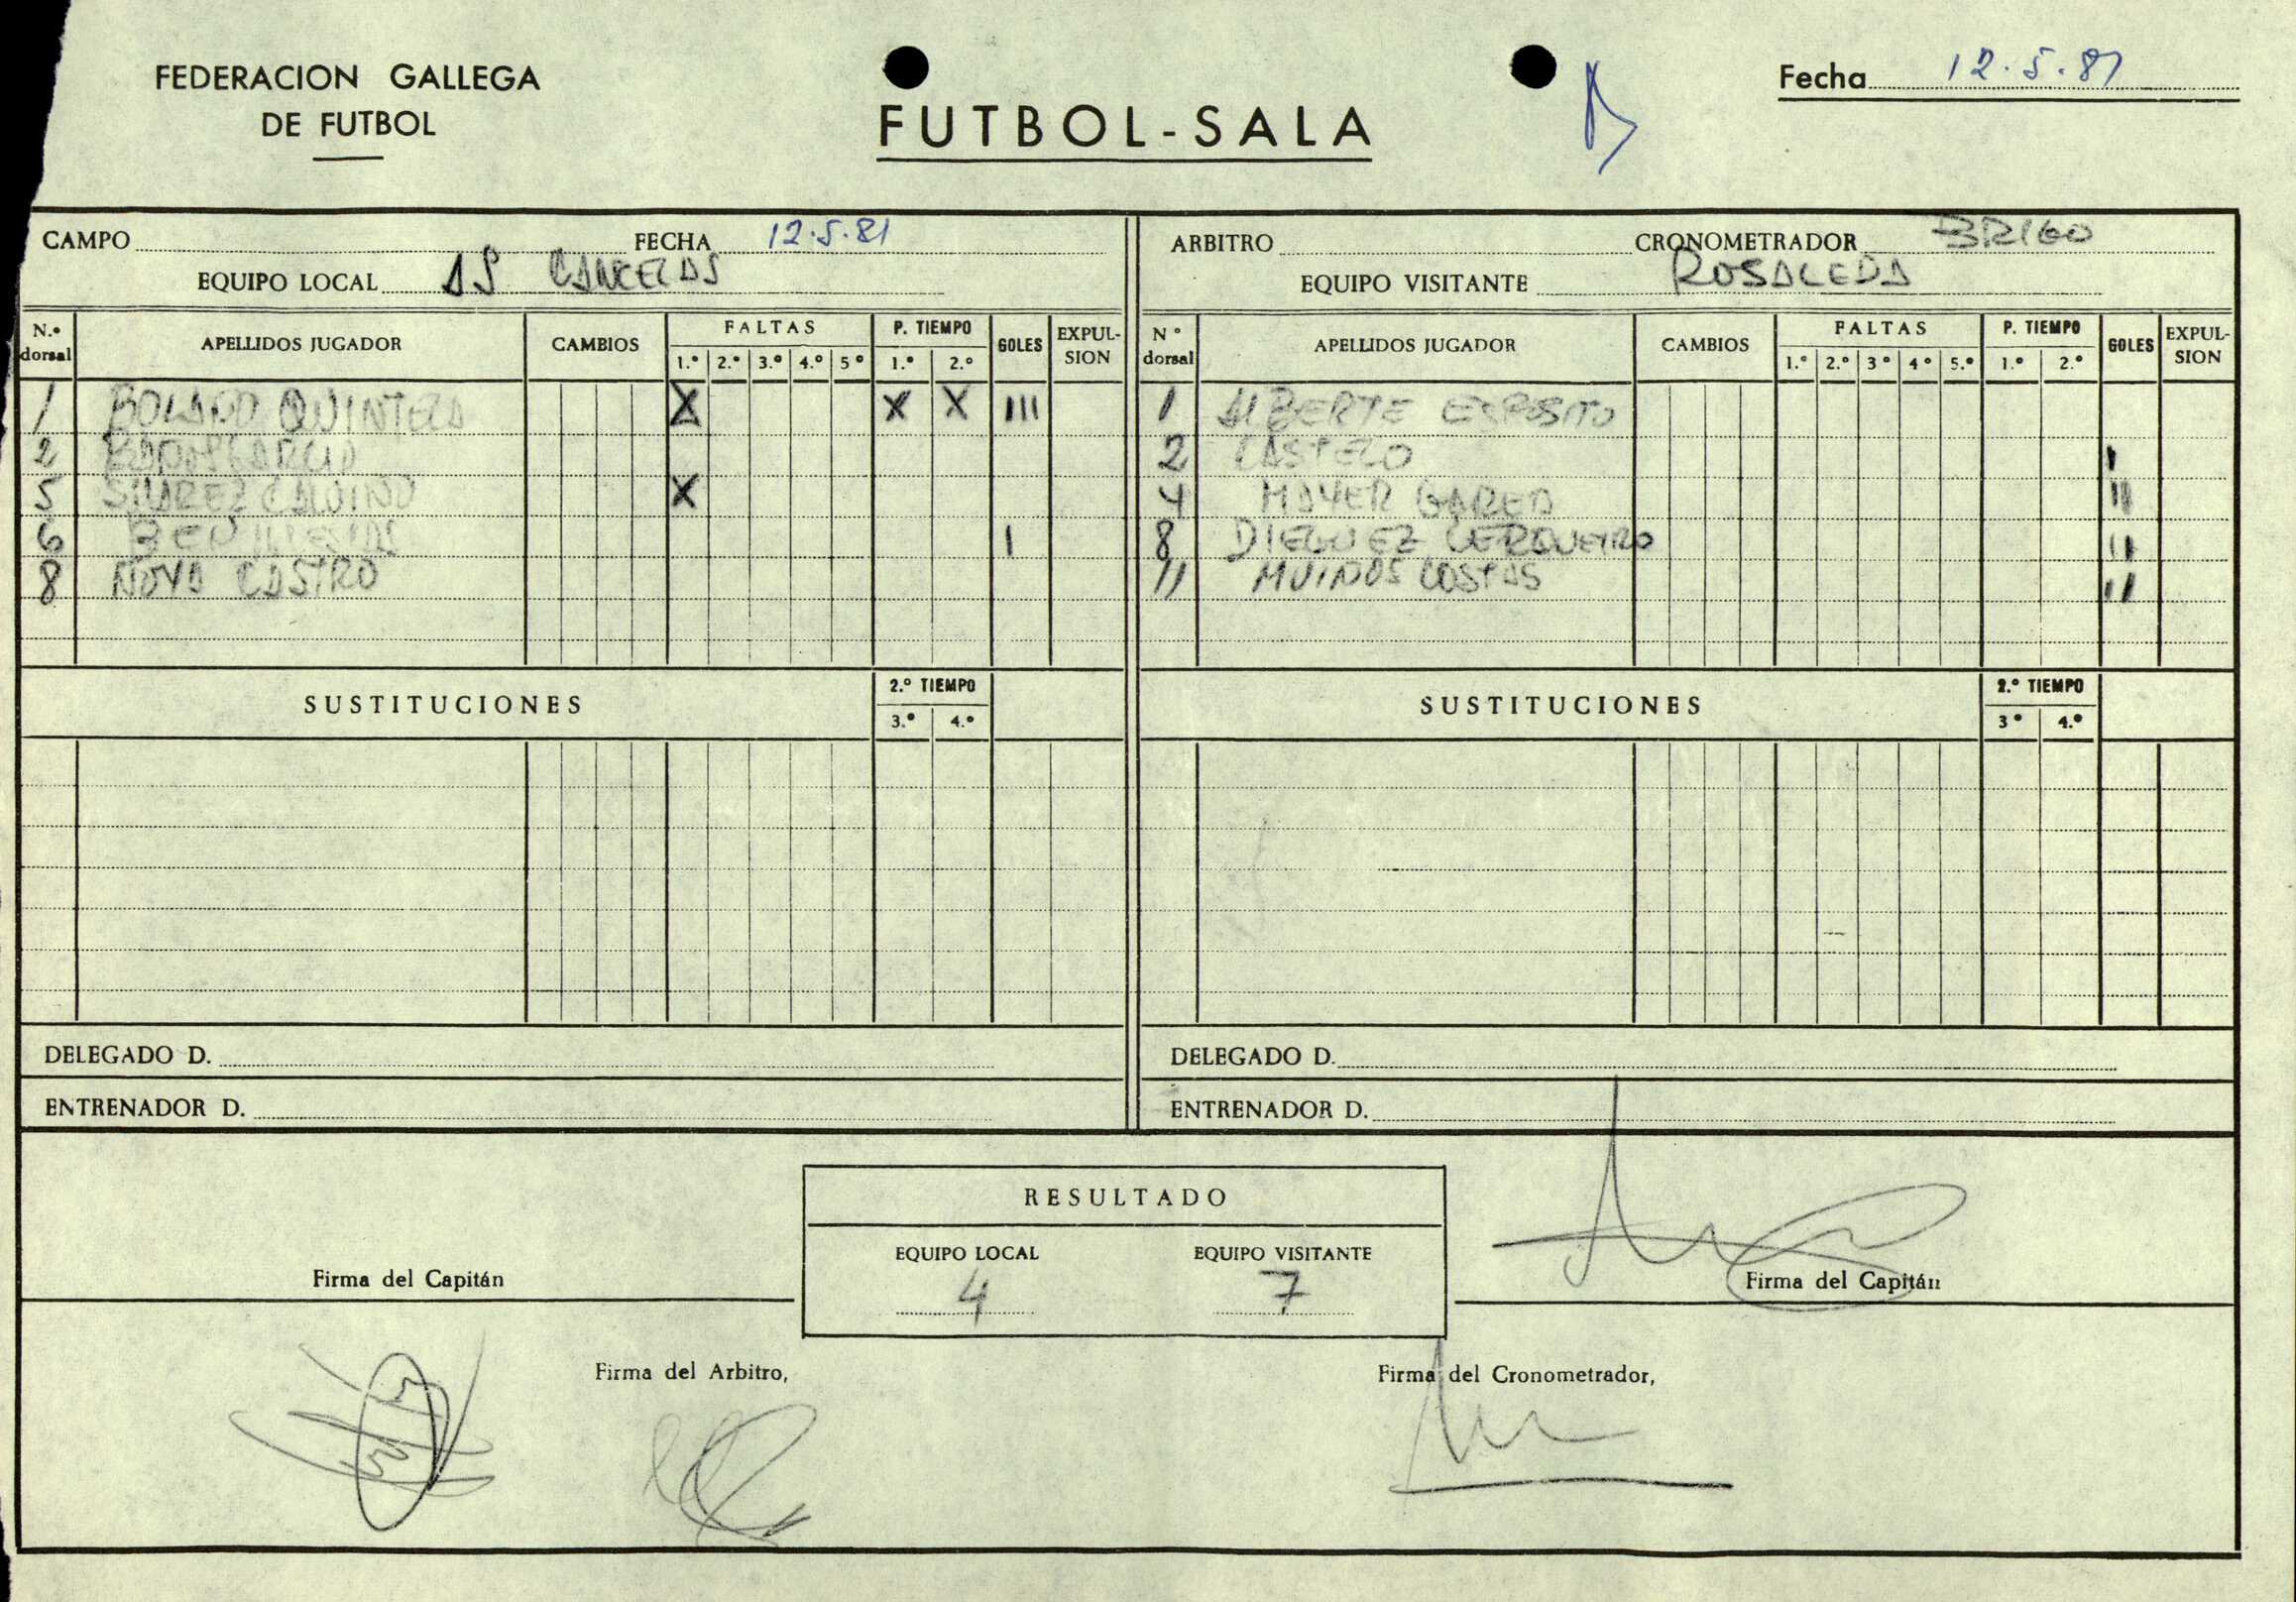 FEDERACION GALLEGA
DE FUTBOL
FUTBOL-SALA
Fecha 12.5.81
CAMPO FECHA 12.5.81
EQUIPO LOCAL AS CANCELAS
N.º dorsal APELLIDOS JUGADOR CAMBIOS FALTAS 1.º 2.º 3.º 4.º 5º P. TIEMPO 1.º 2.º GOLES EXPUL-SION
1 BOLAÑO QUINTELA X X X III
2 GARCIA
5 SUAREZ CALVIÑO X
6 BEN IGLESIAS I
8 NOYA CASTRO
SUSTITUCIONES 2.º TIEMPO 3.º 4.º
DELEGADO D.
ENTRENADOR D.
ARBITRO CRONOMETRADOR BRIGO
EQUIPO VISITANTE ROSALEDA
Nº dorsal APELLIDOS JUGADOR CAMBIOS FALTAS 1.º 2.º 3º 4º 5.º P. TIEMPO 1.º 2.º GOLES EXPUL-SION
1 ALBERTE EXPOSITO
2 CASTELO I
4 MAYER II
8 DIEGUEZ CERQUEIRO II
11 MUIÑOS COSTAS II
SUSTITUCIONES 2.º TIEMPO 3º 4.º
DELEGADO D.
ENTRENADOR D.
RESULTADO
EQUIPO LOCAL EQUIPO VISITANTE
4 7
Firma del Capitán
Firma del Capitán
Firma del Arbitro,
Firma del Cronometrador,